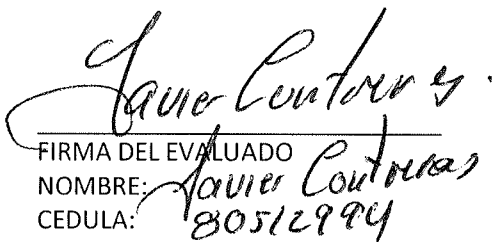 Javier Contreras.
FIRMA DEL EVALUADO
NOMBRE: Javier Contreras
CEDULA: 80512994